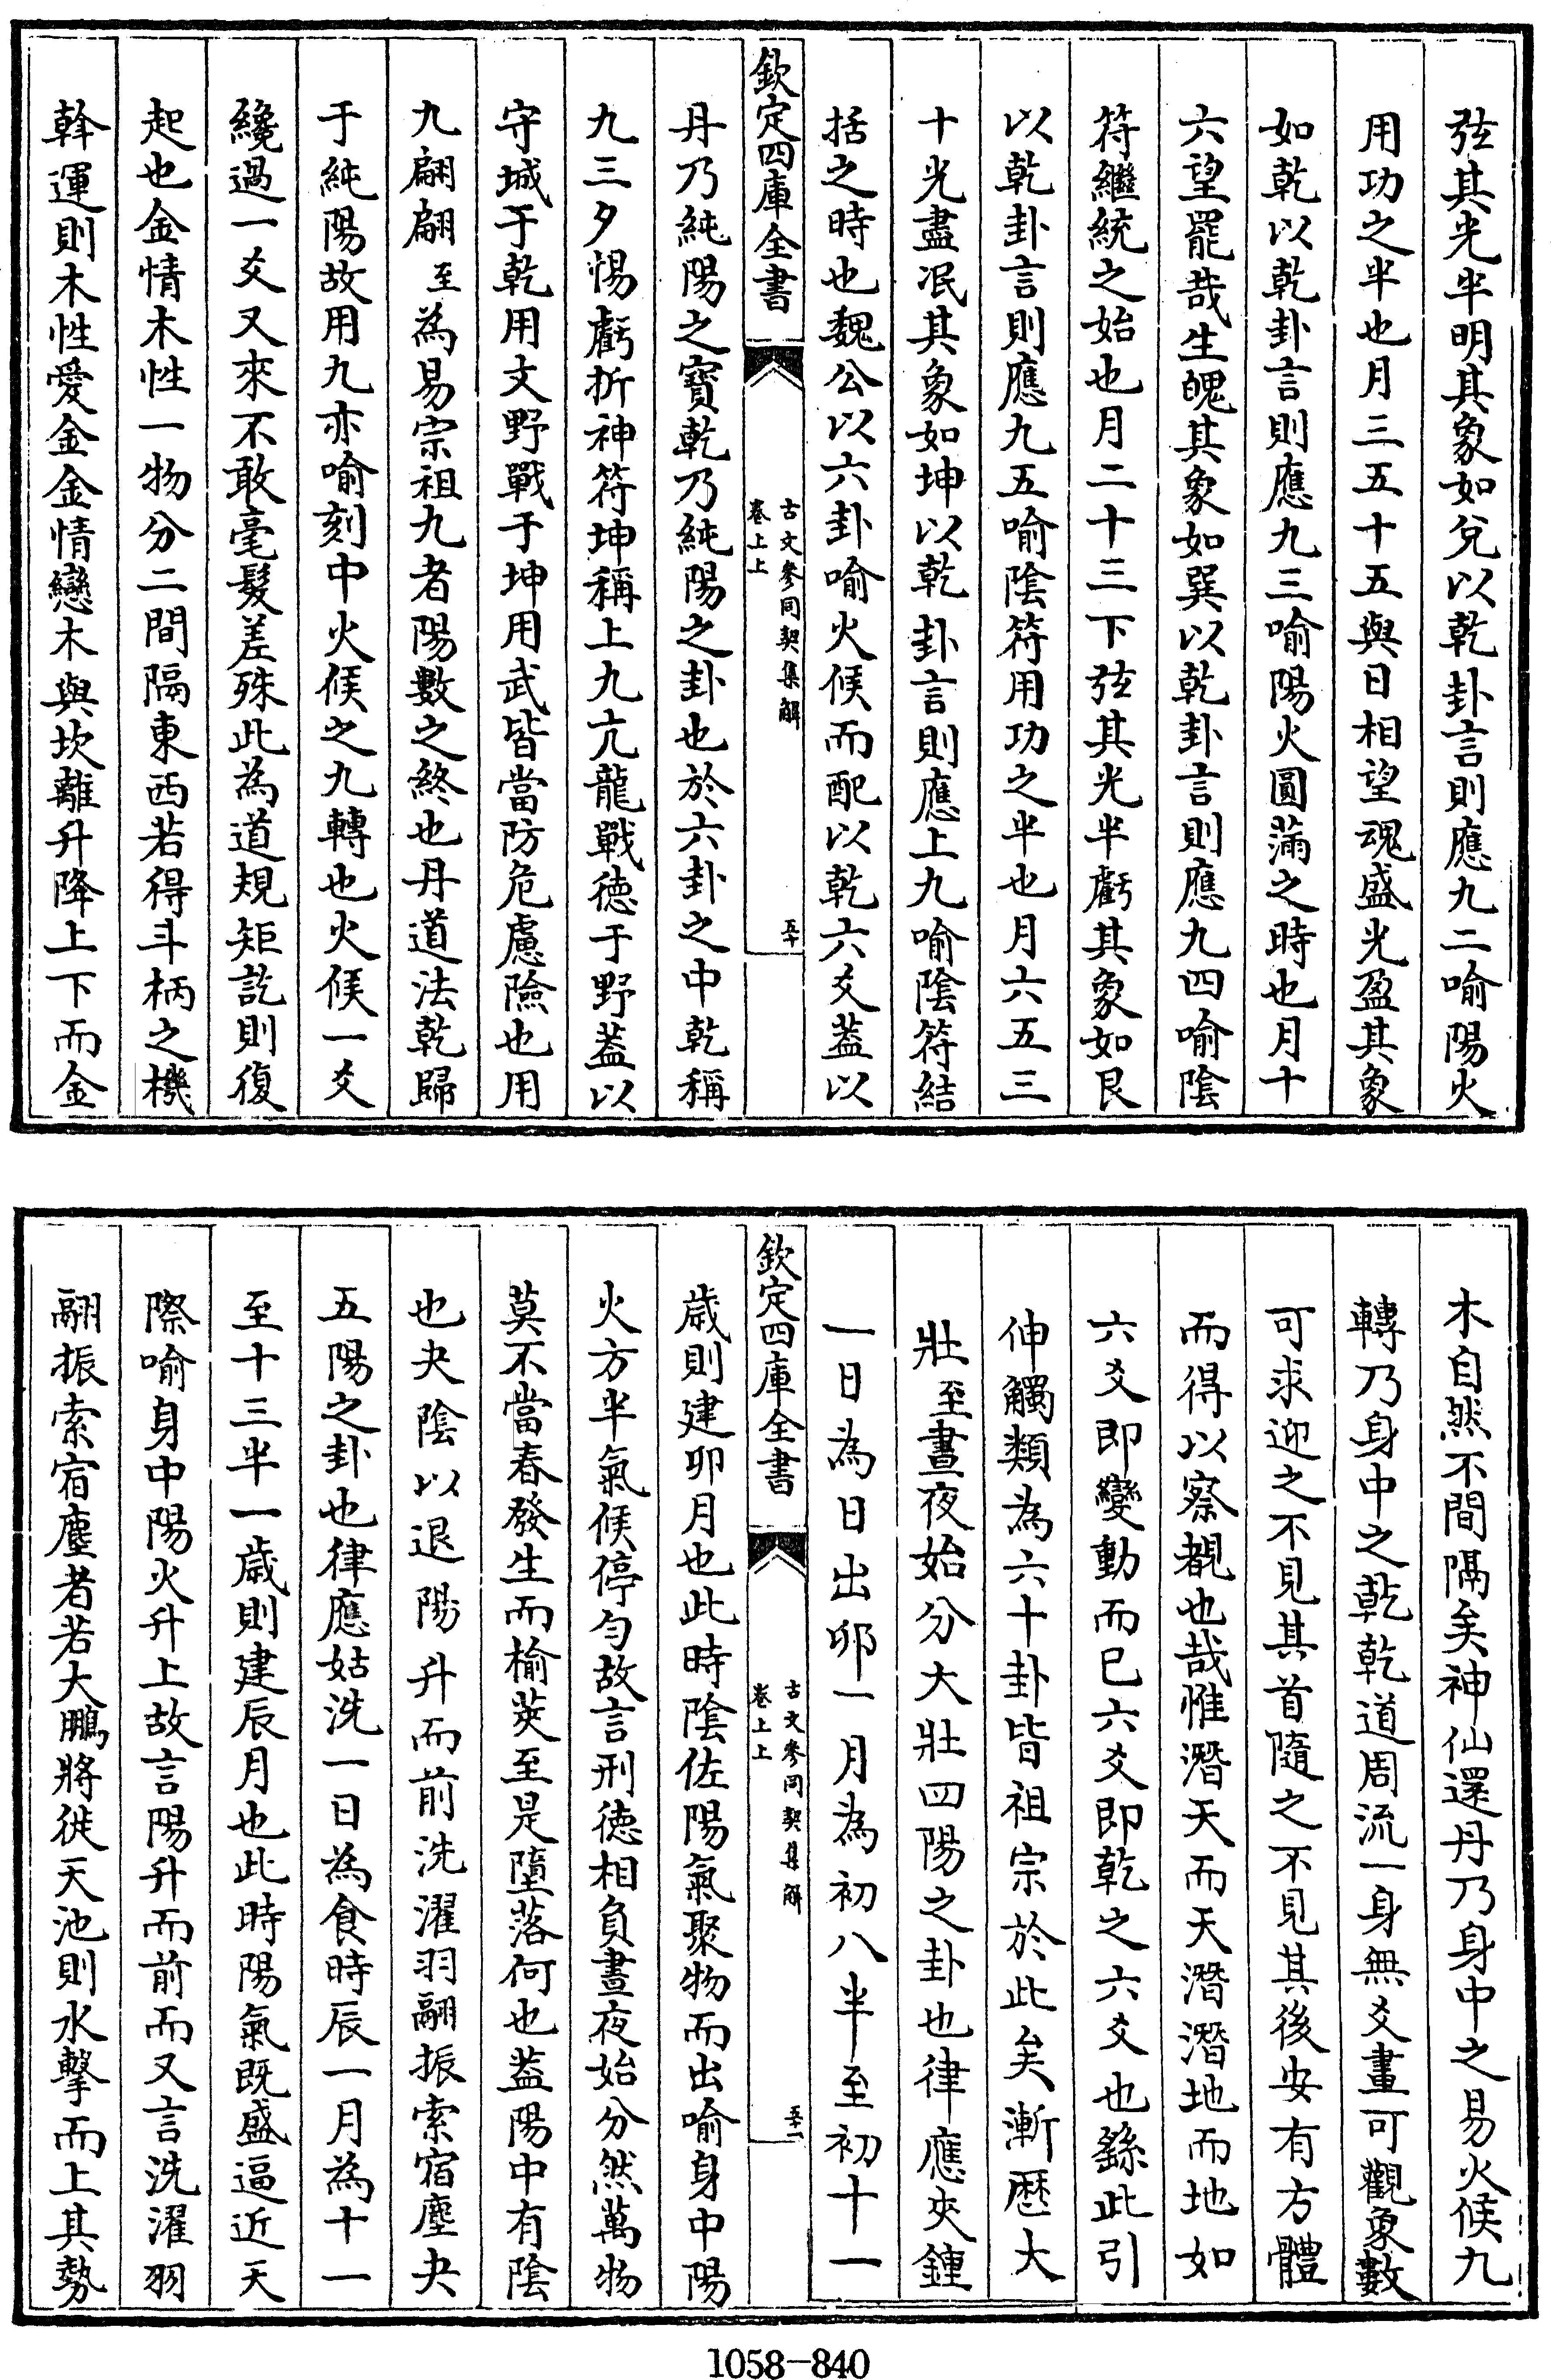 弦其光半明其象如兌以乾卦言則應九二喻陽火
用功之半也月三五十五與日相望魂盛光盈其象
如乾以乾卦言則應九三喻陽火圓滿之時也月十
六望罷哉生魄其象如巽以乾卦言則應九四喻陰
符繼統之始也月二十三下弦其光半虧其象如艮
以乾卦言則應九五喻陰符用功之半也月六五三
十光盡泯其象如坤以乾卦言則應上九喻陰符結
括之時也魏公以六卦喻火候而配以乾六爻葢以
欽定四庫全書
古文參同契集解
卷上上
五十
丹乃純陽之寶乾乃純陽之卦也於六卦之中乾稱
九三夕惕虧折神符坤稱上九亢龍戰徳于野葢以
守城于乾用文野戰于坤用武皆當防危慮險也用
九翩翩至為易宗祖九者陽數之終也丹道法乾歸
于純陽故用九亦喻刻中火候之九轉也火候一爻
纔過一爻又來不敢毫髮差殊此為道規矩訖則復
起也金情木性一物分二間隔東西若得斗柄之機
斡運則木性愛金金情戀木與坎離升降上下而金
木自然不間隔矣神仙還丹乃身中之易火候九
轉乃身中之乾乾道周流一身無爻畫可觀象數
可求迎之不見其首隨之不見其後安有方體
而得以察覩也哉惟潛天而天潛地而地如
六爻即變動而已六爻即乾之六爻也繇此引
伸觸類為六十卦皆祖宗於此矣漸歴大
壯至晝夜始分大壯四陽之卦也律應夾鍾
一日為日出卯一月為初八半至初十一
欽定四庫全書
古文參同契集解
卷上上
五十一
歳則建卯月也此時陰佐陽氣聚物而出喻身中陽
火方半氣候停勻故言刑徳相負晝夜始分然萬物
莫不當春發生而榆莢至是墮落何也葢陽中有陰
也夬陰以退陽升而前洗濯羽翮振索宿塵夬
五陽之卦也律應姑洗一日為食時辰一月為十一
至十三半一歳則建辰月也此時陽氣既盛逼近天
際喻身中陽火升上故言陽升而前而又言洗濯羽
翮振索宿塵者若大鵬將徙天池則水擊而上其勢
1058-840